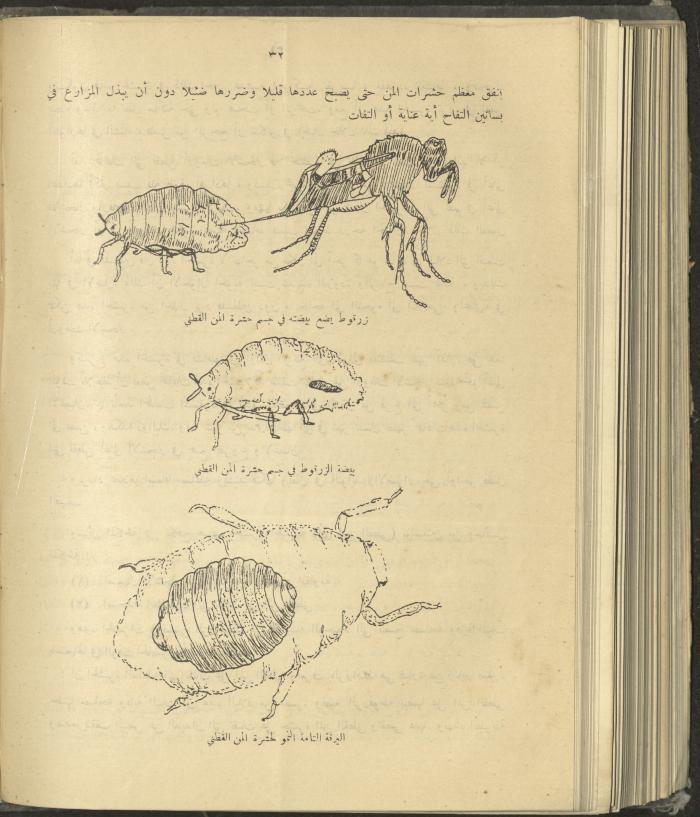 ٣٢
انفق معظم حشرات المن حتى يصبح عددها قليلا وضررها ضئيلا دون أن يبذل المزارع في
بساتين التفاح أية عناية أو التفات
زرقوط يضع بيضته في جسم حشرة المن القطني
بيضة الزرقوط في جسم حشرة المن القطني
اليرقة التامة النمو لحشرة المن القطني